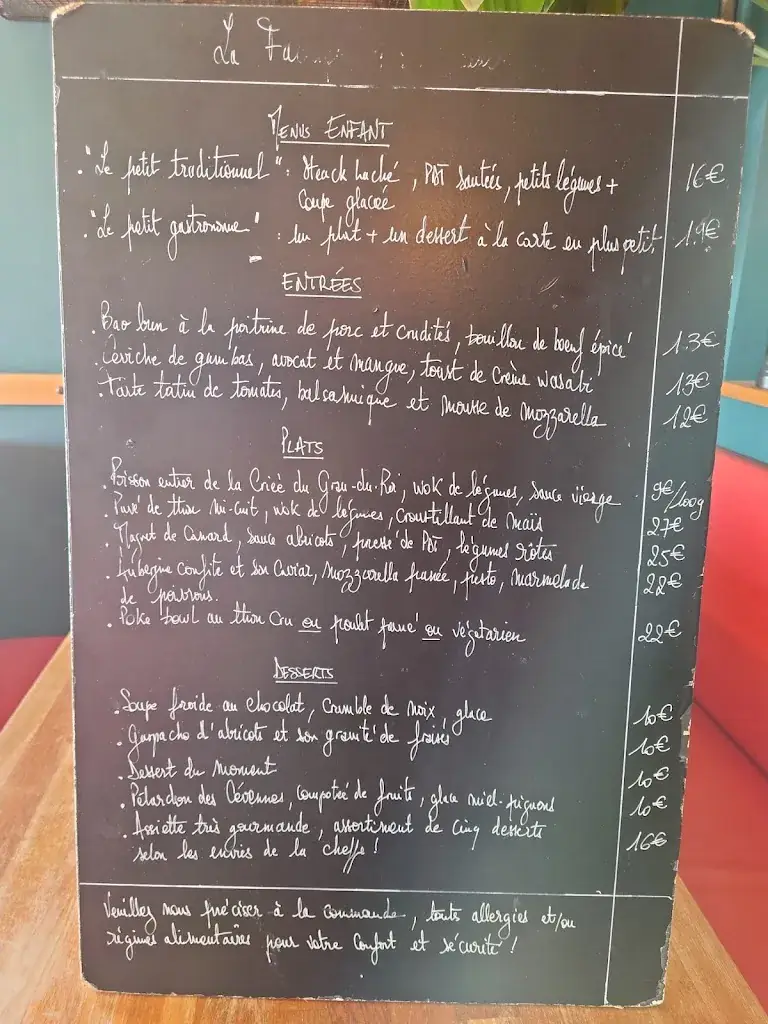 La Fa
MENUS ENFANT
. "Le petit traditionnel" : Steack haché, PDT sautées, petits légumes + 16€
Coupe glacée
. "Le petit gastronome" : un plat + un dessert à la carte en plus petit. 19€
ENTRÉES
. Bao bun à la poitrine de porc et crudités, bouillon de boeuf épicé 13€
. Ceviche de gambas, avocat et mangue, toast de crème wasabi 13€
. Tarte tatin de tomates, balsamique et mousse de mozzarella 12€
PLATS
. Poisson entier de la Criée du Grau-du-Roi, wok de légumes, sauce vierge 9€/100g
. Pavé de thon mi-cuit, wok de légumes, croustillant de maïs 27€
. Magret de Canard, sauce abricots, pressé de PDT, légumes rôtis 25€
. Aubergine confite et son caviar, mozzarella panée, pesto, marmelade 22€
de poivrons.
. Poke bowl au thon cru ou poulet pané ou végétarien 22€
DESSERTS
. Soupe froide au chocolat, crumble de noix, glace 10€
. Gaspacho d'abricots et son granité de fraises 10€
. Dessert du moment 10€
. Pélardon des Cévennes, compotée de fruits, glace miel-pignons 10€
. Assiette très gourmande, assortiment de cinq desserts 16€
selon les envies de la cheffe !
Veuillez nous préciser à la commande, touts allergies et/ou
régimes alimentaires pour votre confort et sécurité !